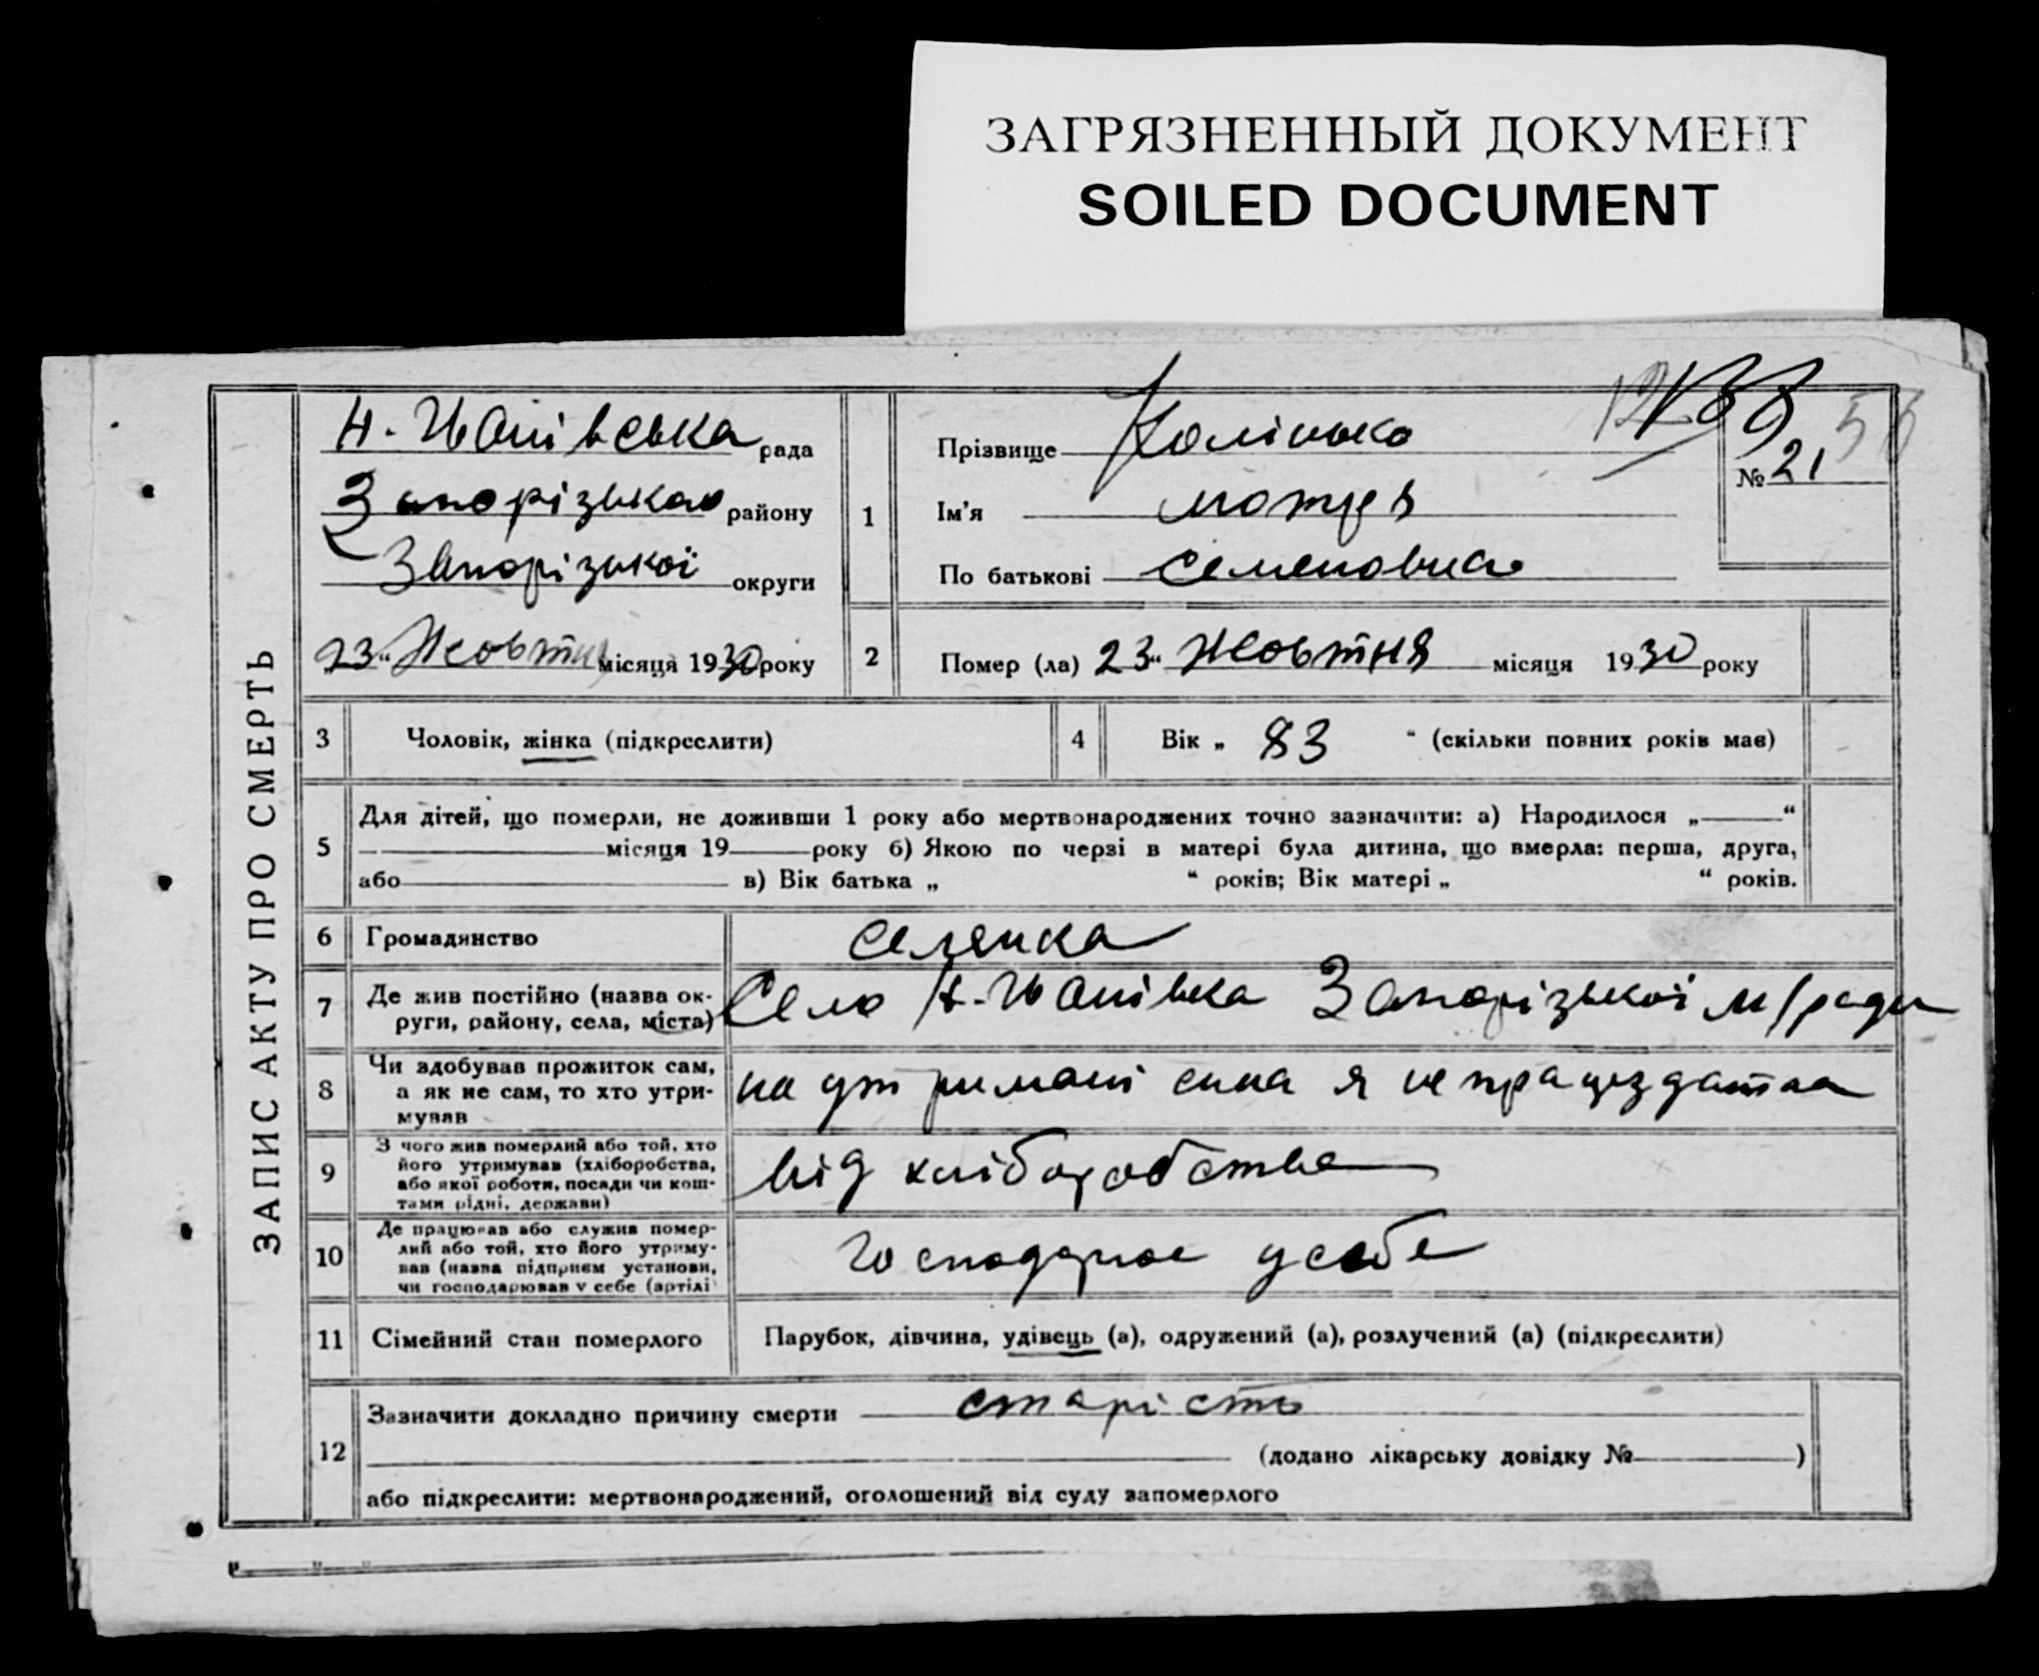 ЗАГРЯЗНЕННЫЙ ДОКУМЕНТ
SOILED DOCUMENT
ЗАПИС АКТУ ПРО СМЕРТЬ
рада
Запорізького району
Запорізької округи
„23“ Жовтня місяця 1930 року
1
Прізвище
Ім'я мотря
По батькові семеновна
№ 21
2
Помер (ла) 23“ Жовтня місяця 1930 року
3
Чоловік, жінка (підкреслити)
4
Вік „ 83 “ (скільки повних років має)
5
Для дітей, що померли, не доживши 1 року або мертвонароджених точно зазначити: а) Народилося „ “
місяця 19 року б) Якою по черзі в матері була дитина, що вмерла: перша, друга,
або в) Вік батька „ “ років; Вік матері „ “ років.
6
Громадянство селенка
7
Де жив постійно (назва ок-
руги, району, села, міста)
Село Запорізької м/ради
8
Чи здобував прожиток сам,
а як не сам, то хто утри-
мував
на утримані сина я непрацездатна
9
З чого жив померлий або той, хто
його утримував (хліборобства,
або якої роботи, посади чи кош-
тами рідні, держави)
від хліборобства
10
Де працював або служив помер-
лий або той, хто його утриму-
вав (назва підприєм установи,
чи господарював у себе (артілі
у себе
11
Сімейний стан померлого
Парубок, дівчина, удівець (а), одружений (а), розлучений (а) (підкреслити)
12
Зазначити докладно причину смерти старість
(додано лікарську довідку № )
або підкреслити: мертвонароджений, оголошений від суду запомерлого